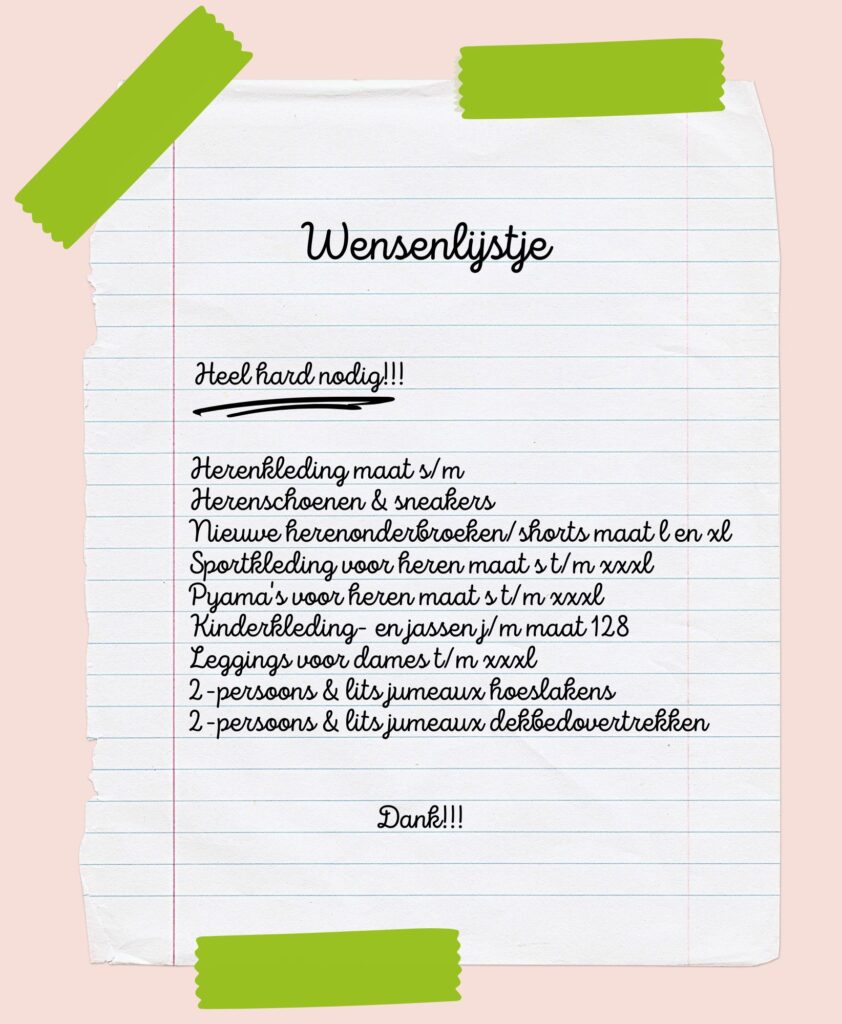 Wensenlijstje
Heel hard nodig!!!
Herenkleding maat s/m
Herenschoenen & sneakers
Nieuwe herenonderbroeken/shorts maat l en xl
Sportkleding voor heren maat s t/m xxxl
Pyama's voor heren maat s t/m xxxl
Kinderkleding- en jassen j/m maat 128
Leggings voor dames t/m xxxl
2-persoons & lits jumeaux hoeslakens
2-persoons & lits jumeaux dekbedovertrekken
Dank!!!